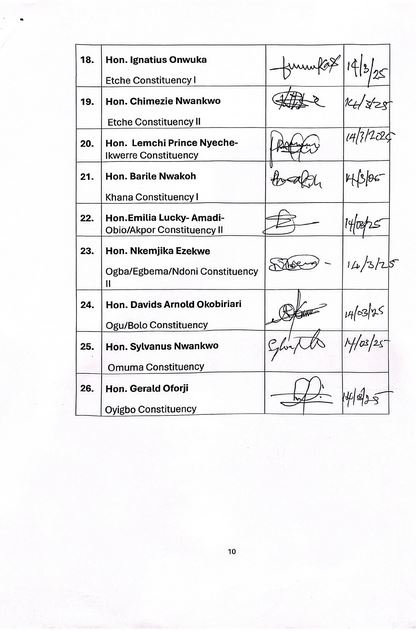 18. Hon. Ignatius Onwuka 14/3/25
Etche Constituency I
19. Hon. Chimezie Nwankwo 14/3/25
Etche Constituency II
20. Hon. Lemchi Prince Nyeche- 14/3/2025
Ikwerre Constituency
21. Hon. Barile Nwakoh
Khana Constituency I
22. Hon.Emilia Lucky- Amadi- 14/03/25
Obio/Akpor Constituency II
23. Hon. Nkemjika Ezekwe 14/3/25
Ogba/Egbema/Ndoni Constituency
II
24. Hon. Davids Arnold Okobiriari 14/03/25
Ogu/Bolo Constituency
25. Hon. Sylvanus Nwankwo 14/03/25
Omuma Constituency
26. Hon. Gerald Oforji
Oyigbo Constituency
10